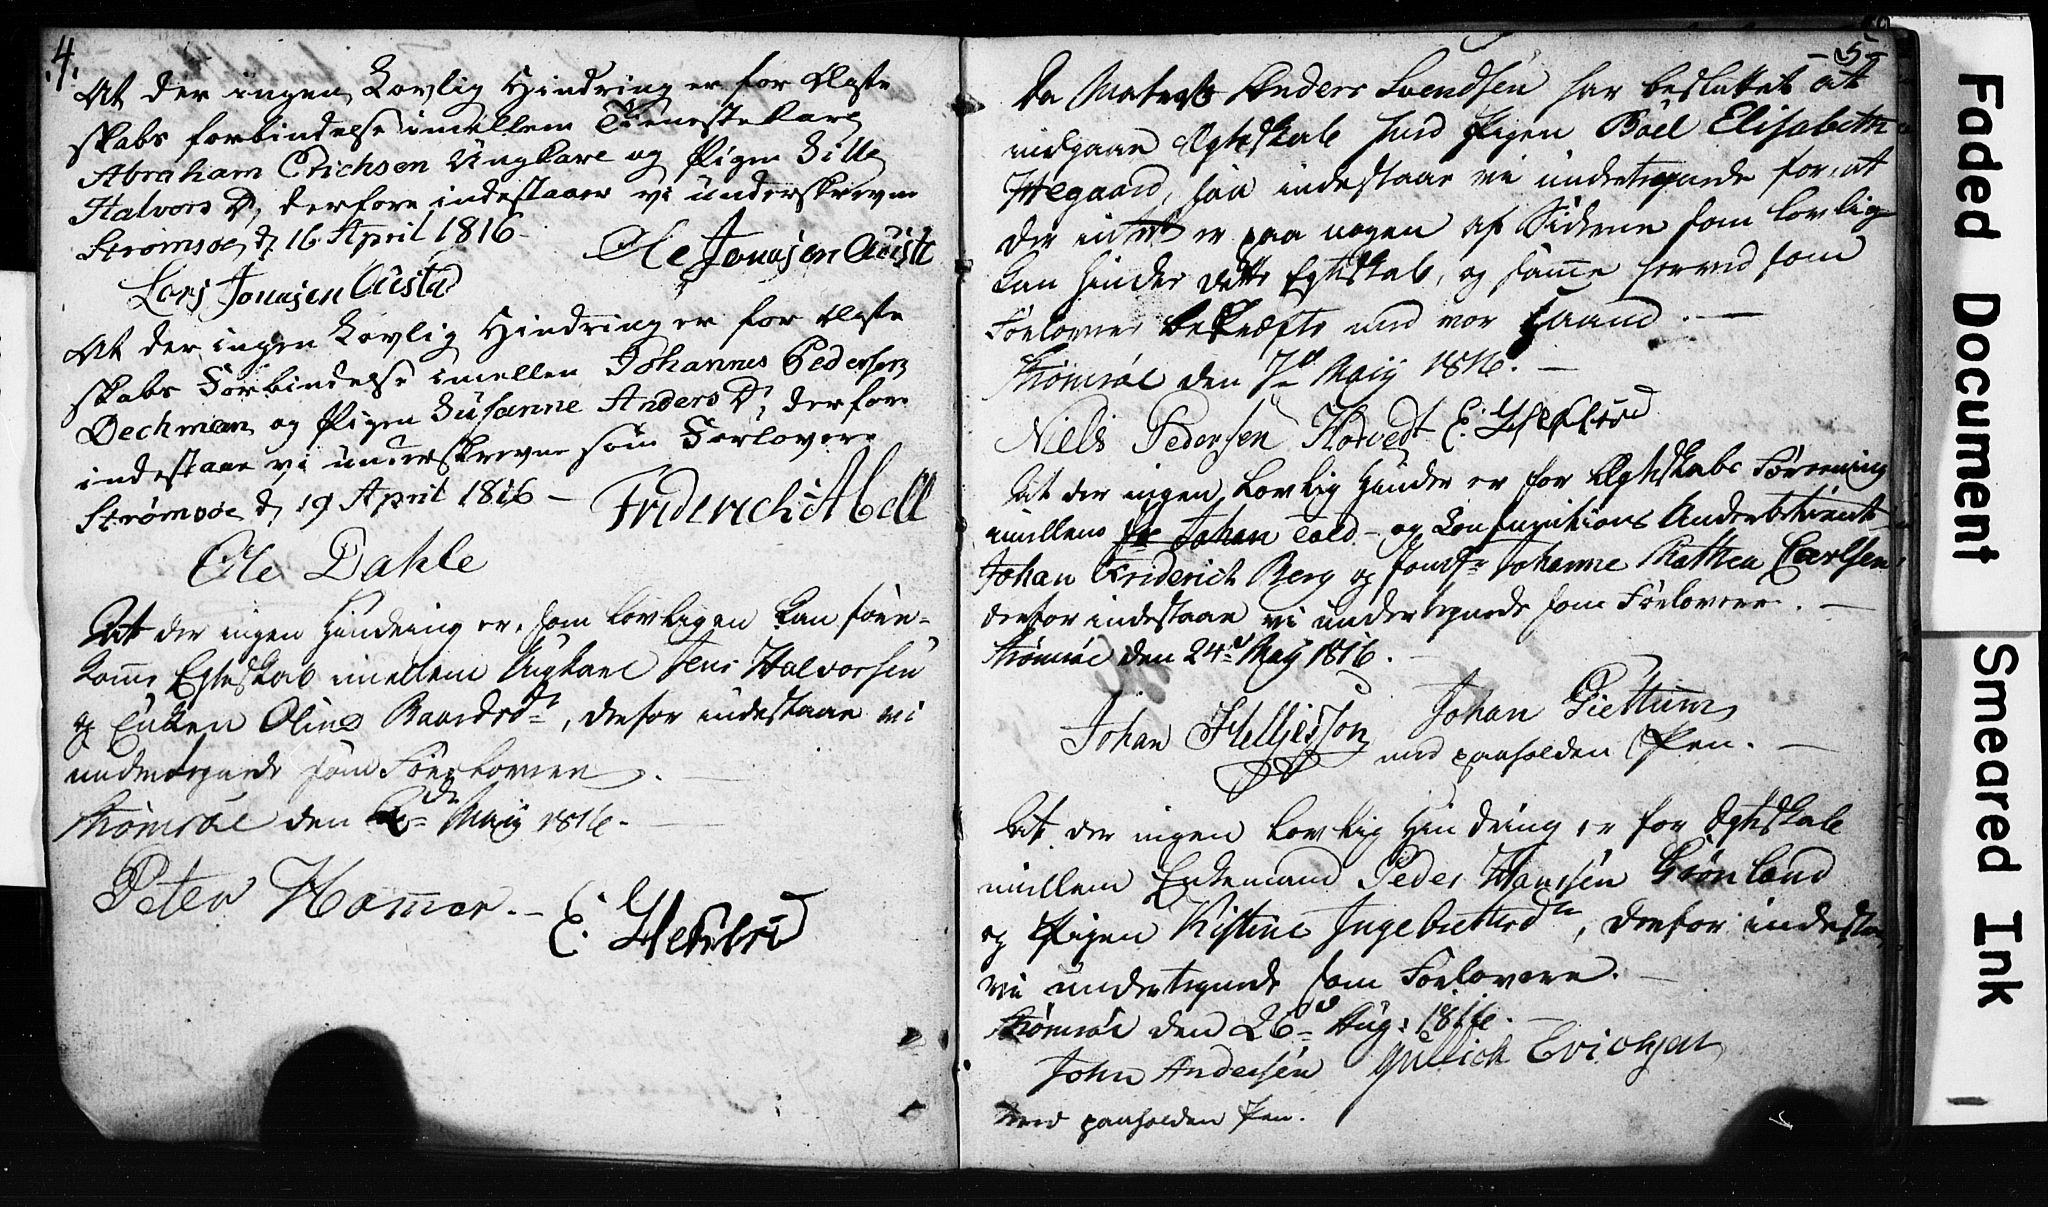 4.
At der ingen Lovlig Hindring er for Ægte
skabs forbindelse imellem Tienestekarl
Abraham Erichsen Ungkarl og Pigen Sille
Halvors D, derfore indestaaer vi underskrevne
Strømsøe, d 16 April 1816
Ole Jonasen Austa
Lars Jonasen Austad
At der ingen Lovlig Hindring er for Ægte
skabs Forbindelse imellem Johannes Pedersen
Dechmean og Pigen Susanne Anders D, derfor
indestaae vi underskrevne som Forlovere
Strømsøe d 19 April 1816 –
Friderich Abell
Ole Dahle
At der ingen Hindring er, som lovligen kan fore-
komme Egteskab imellem Ungkarl Jens Halvorsen
og Enken Oline Baardsdr, derfor indestaae vi
undertegnede som Forlovere.
Strømsøe den Maij 1816.
Peter Hammer.–
E. Hesselroed
-5-
Da Matros Anders Svendsen har besluttet at
indgaae Egteskab med Pigen Bôel Elisabeth
Hegaard, saa indestaae vi undertegnede for, at
der intet er paa nogen af Siderne som lovlig
kan hindre dette Egteskab, og samme herved som
Forlovere bekræfte med vor Haand. –
Strømsøe den 7de Maij 1816. –
Niels Pedersen Horvedt E. Hesselroed
At der ingen Lovlig Hinder er for Egteskabs Forening
imellem Johan Told- og Consumtions Underbetient
Johan Friderich Berg og Jomfr Johanne Mathea Carlsen,
derfor indestaae vi undertegnede som Forlovere. –
Strømsøe den 24d Maij 1816.
Johan Helljesson Johan Giettum
med paaholden Pen. –
At der ingen Lovlig Hindring er for Egteskab
imellem Enkemand Peder Hansen Grønland
og Pigen Kistine Ingebrettsdtr, derfor indestaa
vi undertegnede som Forlovere. –
Strømsøe den 26d Aug: 1816.
John Andersen Gullich Erichsen
med paaholden Pen.
Faded Document
Smeared Ink